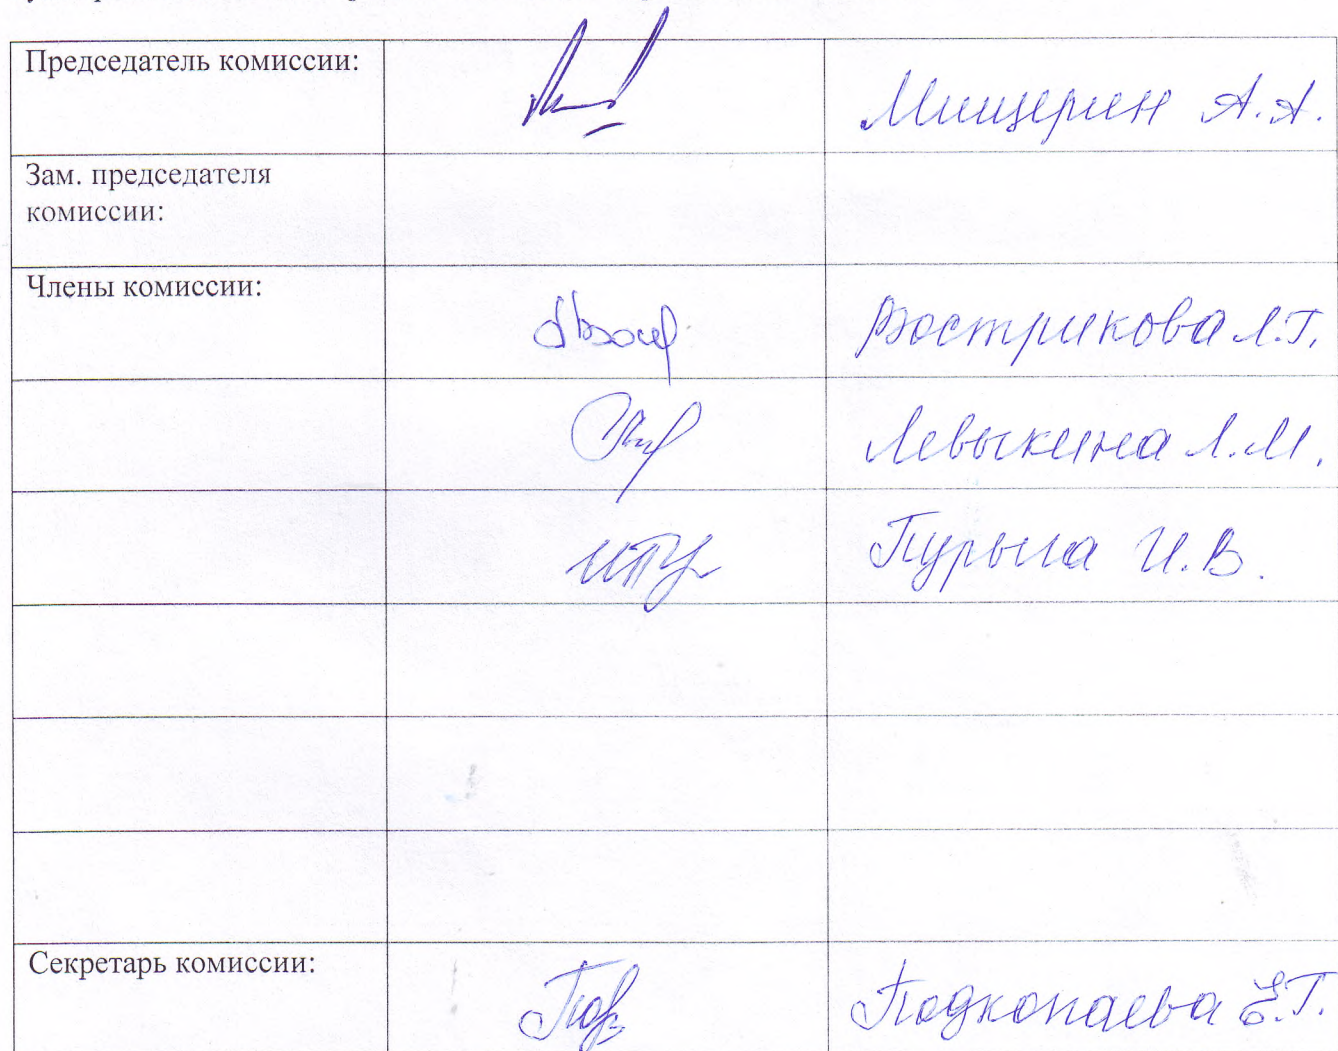 Председатель комиссии:
Мищерин А.А.
Зам. председателя
комиссии:
Члены комиссии:
Вострикова Л.Г.
Левыкина Л.М.
Пурыга И.В.
Секретарь комиссии:
Подкопаева Е.Г.